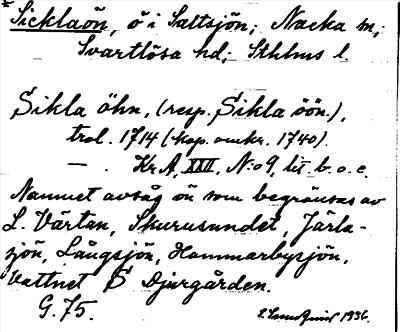 * Sicklaön, ö i Saltsjön; Nacka sn;
Svartlösa hd; Sthlms l.
Sikla öhn, (resp. Sikla öön.),
trol. 1714 (kop. omkr. 1740).
— . Kr.A, XXII, N:o 9, lit. b. o. c.
Namnet avsåg ön som begränsas av
L. Värtan, Skurusundet, Järla-
sjön, Långsjön, Hammarbysjön,
Vattnet S Djurgården.
G. 75.
1936.